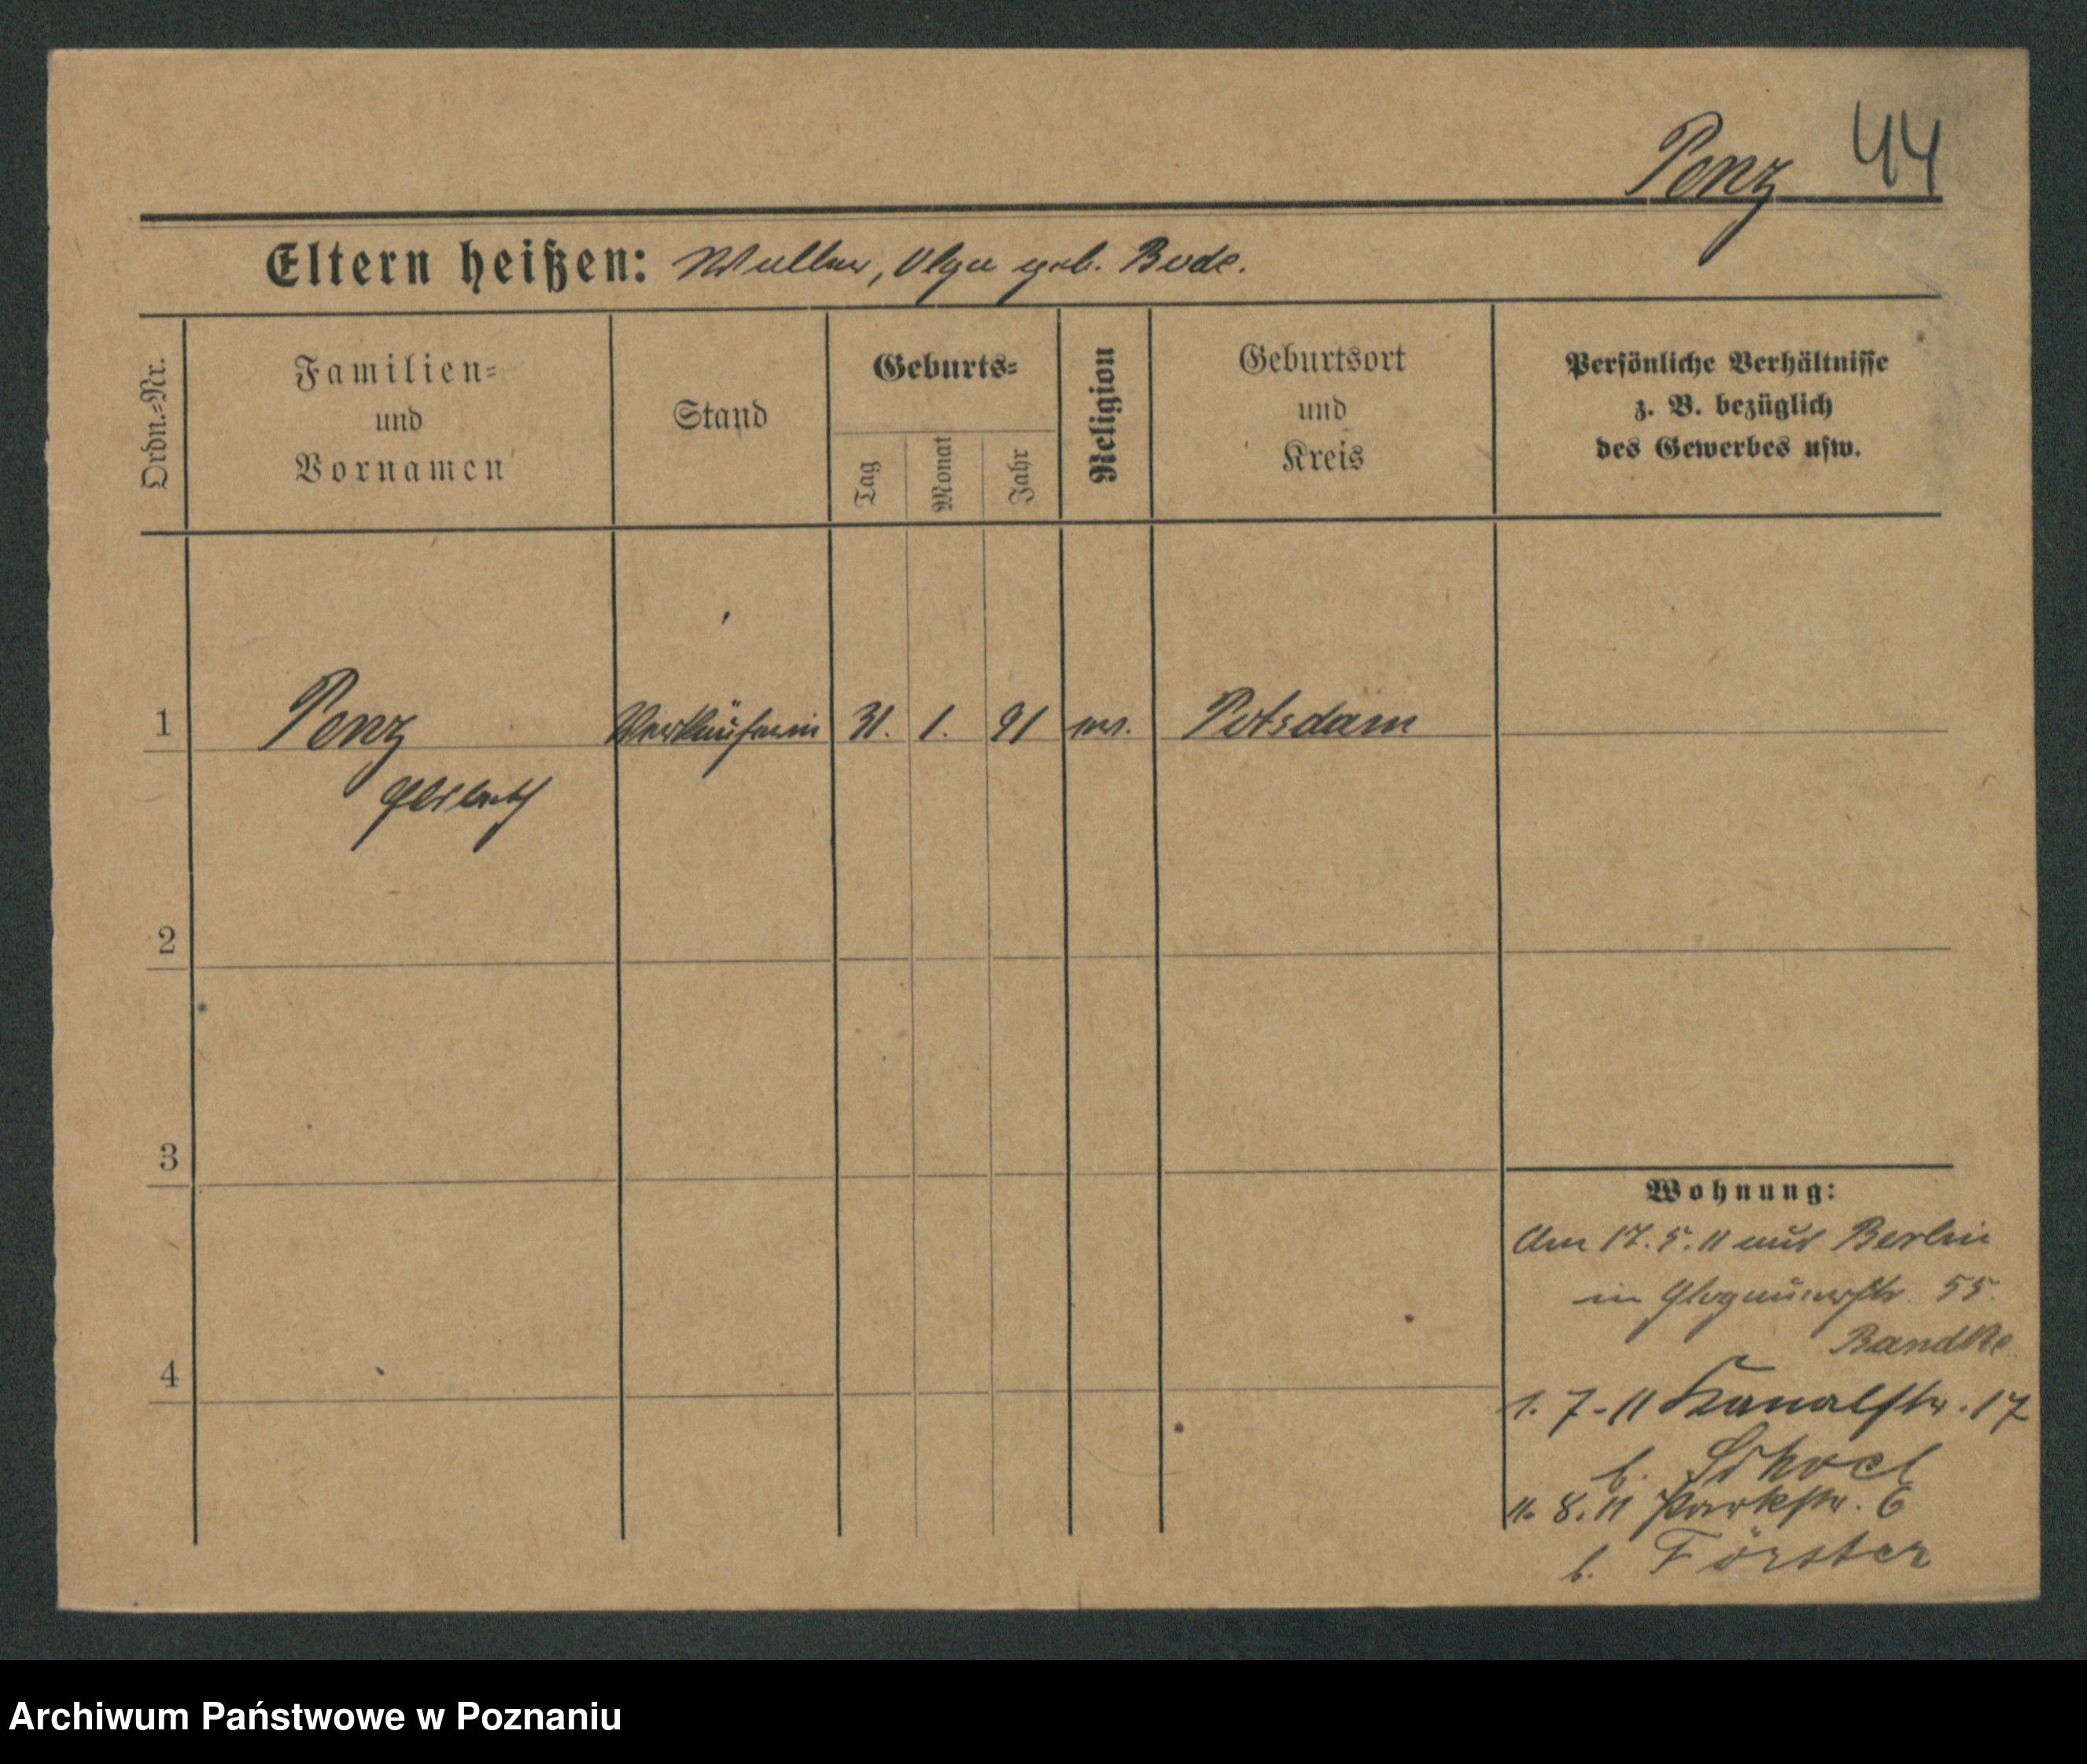 Penz 44
Eltern heißen: Walter, Olga geb. Bode.
Ordn.=Nr.
Familien=
und
Vornamen
Stand
Geburts=
Tag
Monat
Jahr
Religion
Geburtsort
und
Kreis
Persönliche Verhältnisse
z. B. bezüglich
des Gewerbes usw.
1 Penz Verkäuferin 31. 1. 91 ev. Potsdam
2
3
4
Wohnung:
Am 17. 5. 11 aus Berlin
in Glogauerstr. 55.
Bandke
1. 7. 11 Kanalstr. 17
b.
11. 8. 11 Parkstr. 6
b. Förster
Archiwum Państwowe w Poznaniu